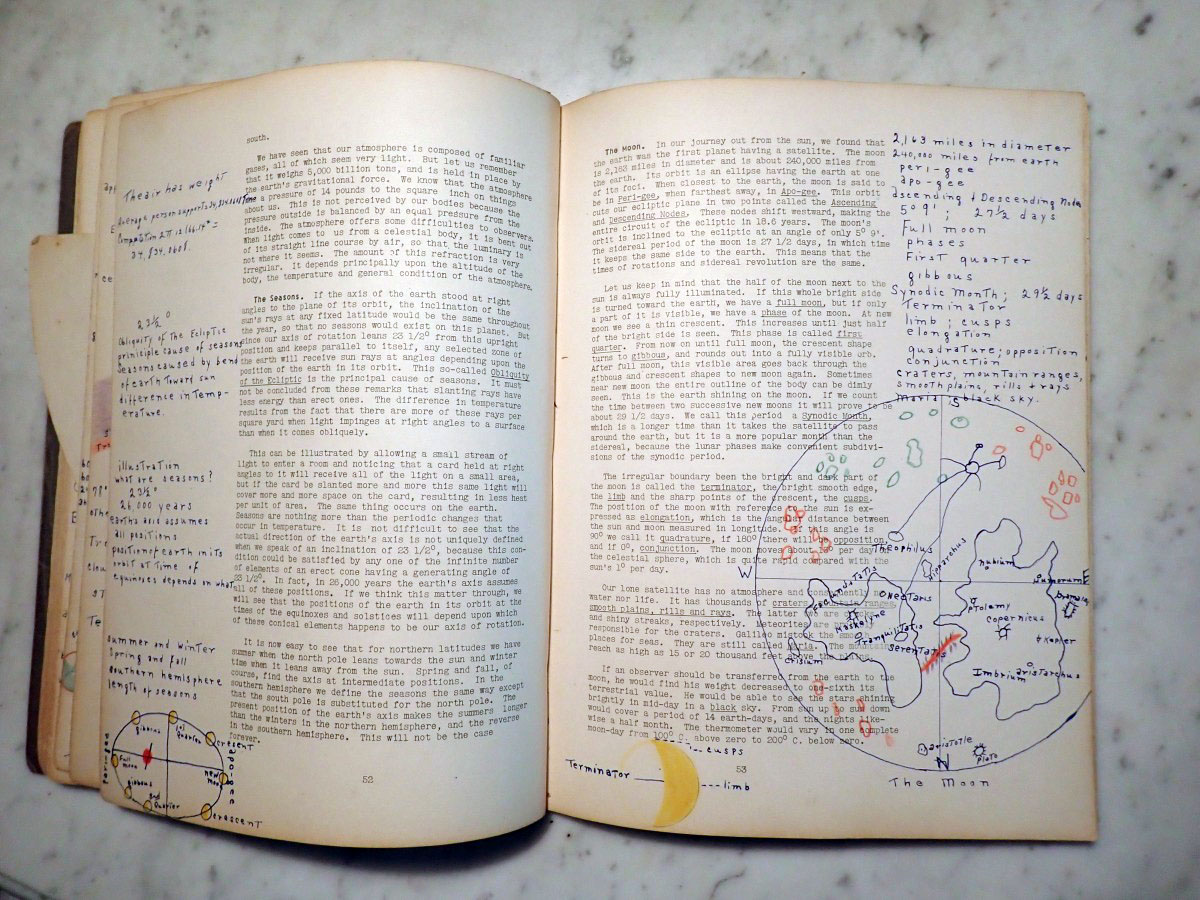 south.
We have seen that our atmosphere is composed of familiar
gases, all of which seem very light. But let us remember
that it weighs 5,000 billion tons, and is held in place by
the earth's gravitational force. We know that the atmosphere
has a pressure of 14 pounds to the square inch on things
about us. This is not perceived by our bodies because the
pressure outside is balanced by an equal pressure from the
inside. The atmosphere offers some difficulties to observers.
When light comes to us from a celestial body, it is bent out
of its straight line course by air, so that the luminary is
not where it seems. The amount of this refraction is very
irregular. It depends principally upon the altitude of the
body, the temperature and general condition of the atmosphere.
The Seasons. If the axis of the earth stood at right
angles to the plane of its orbit, the inclination of the
sun's rays at any fixed latitude would be the same throughout
the year, so that no seasons would exist on this planet. But
since our axis of rotation leans 23 1/2° from this upright
position and keeps parallel to itself, any selected zone of
the earth will receive sun rays at angles depending upon the
position of the earth in its orbit. This so-called Obliquity
of the Ecliptic is the principal cause of seasons. It must
not be concluded from these remarks that slanting rays have
less energy than erect ones. The difference in temperature
results from the fact that there are more of these rays per
square yard when light impinges at right angles to a surface
than when it comes obliquely.
This can be illustrated by allowing a small stream of
light to enter a room and noticing that a card held at right
angles to it will receive all of the light on a small area,
but if the card be slanted more and more this same light will
cover more and more space on the card, resulting in less heat
per unit of area. The same thing occurs on the earth.
Seasons are nothing more than the periodic changes that
occur in temperature. It is not difficult to see that the
actual direction of the earth's axis is not uniquely defined
when we speak of an inclination of 23 1/2°, because this con-
dition could be satisfied by any one of the infinite number
of elements of an erect cone having a generating angle of
23 1/2°. In fact, in 26,000 years the earth's axis assumes
all of these positions. If we think this matter through, we
will see that the positions of the earth in its orbit at the
times of the equinoxes and solstices will depend upon which
of these conical elements happens to be our axis of rotation.
It is now easy to see that for northern latitudes we have
summer when the north pole leans towards the sun and winter
time when it leans away from the sun. Spring and fall, of
course, find the axis at intermediate positions. In the
southern hemisphere we define the seasons the same way except
that the south pole is substituted for the north pole. The
present position of the earth's axis makes the summers longer
than the winters in the northern hemisphere, and the reverse
in the southern hemisphere. This will not be the case
forever.
52
The air has weight
23½°
Obliquity of The Ecliptic
principle cause of seasons
Seasons caused by bend
of earth Toward sun
difference in Temp-
erature.
illustration
what are seasons?
23½
26,000 years
earths axis assumes
all positions
position of earth in its
orbit at Time of
equinoxes depends on what
summer and winter
Spring and fall
southern hemisphere
length of seasons
gibbous
1st Quarter
crescent
Full moon
new moon
gibbous
3rd Quarter
crescent
The Moon. In our journey out from the sun, we found that
the earth was the first planet having a satellite. The moon
is 2,163 miles in diameter and is about 240,000 miles from
the earth. Its orbit is an ellipse having the earth at one
of its foci. When closest to the earth, the moon is said to
be in Peri-gee, when farthest away, in Apo-gee. This orbit
cuts our ecliptic plane in two points called the Ascending
and Descending Nodes. These nodes shift westward, making the
entire circuit of the ecliptic in 18.6 years. The moon's
orbit is inclined to the ecliptic at an angle of only 5° 9'.
The sidereal period of the moon is 27 1/2 days, in which time
it keeps the same side to the earth. This means that the
times of rotations and sidereal revolution are the same.
Let us keep in mind that the half of the moon next to the
sun is always fully illuminated. If this whole bright side
is turned toward the earth, we have a full moon, but if only
a part of it is visible, we have a phase of the moon. At new
moon we see a thin crescent. This increases until just half
of the bright side is seen. This phase is called first
quarter. From now on until full moon, the crescent shape
turns to gibbous, and rounds out into a fully visible orb.
After full moon, this visible area goes back through the
gibbous and crescent shapes to new moon again. Sometimes
near new moon the entire outline of the body can be dimly
seen. This is the earth shining on the moon. If we count
the time between two successive new moons it will prove to be
about 29 1/2 days. We call this period a Synodic Month,
which is a longer time than it takes the satellite to pass
around the earth, but it is a more popular month than the
sidereal, because the lunar phases make convenient subdivi-
sions of the synodic period.
The irregular boundary between the bright and dark part of
the moon is called the terminator, the bright smooth edge,
the limb and the sharp points of the crescent, the cusps.
The position of the moon with reference to the sun is ex-
pressed as elongation, which is the angular distance between
the sun and moon measured in longitude. If this angle is
90° we call it quadrature, if 180° there will be opposition,
and if 0°, conjunction. The moon moves about 13° per day
the celestial sphere, which is quite rapid compared with the
sun's 1° per day.
Our lone satellite has no atmosphere and consequently no
water nor life. It has thousands of craters, mountain ranges,
smooth plains, rills and rays. The latter two are
and shiny streaks, respectively. Meteorites are
responsible for the craters. Galileo mistook the smooth
places for seas. They are still called Maria. The mountains
reach as high as 15 or 20 thousand feet above the plains.
If an observer should be transferred from the earth to the
moon, he would find his weight decreased to one-sixth its
terrestrial value. He would be able to see the stars shining
brightly in mid-day in a black sky. From sun up to sun down
would cover a period of 14 earth-days, and the nights like-
wise a half month. The thermometer would vary in one complete
moon-day from 100° C. above zero to 200° C. below zero.
53
2,163 miles in diameter
240,000 miles from earth
peri-gee
apo-gee
ascending + Descending Nodes
5° 9'; 27½ days
Full moon
phases
First quarter
gibbous
Synodic Month; 29½ days
Terminator
limb; cusps
elongation
quadrature; opposition
conjunction
craters, mountain ranges,
smooth plains, rills + rays
Maria black sky.
S
W
E
N
Theophilus
Hipparchus
Nubium
Humorum
Fecundatatis
Nectaris
Ptolemy
Copernicus
Maskelyne
Tranquilitatis
Kepler
Serentatis
Crisium
Imbrium
aristarchus
aristotle
Plato
The Moon
cusps
Terminator
limb